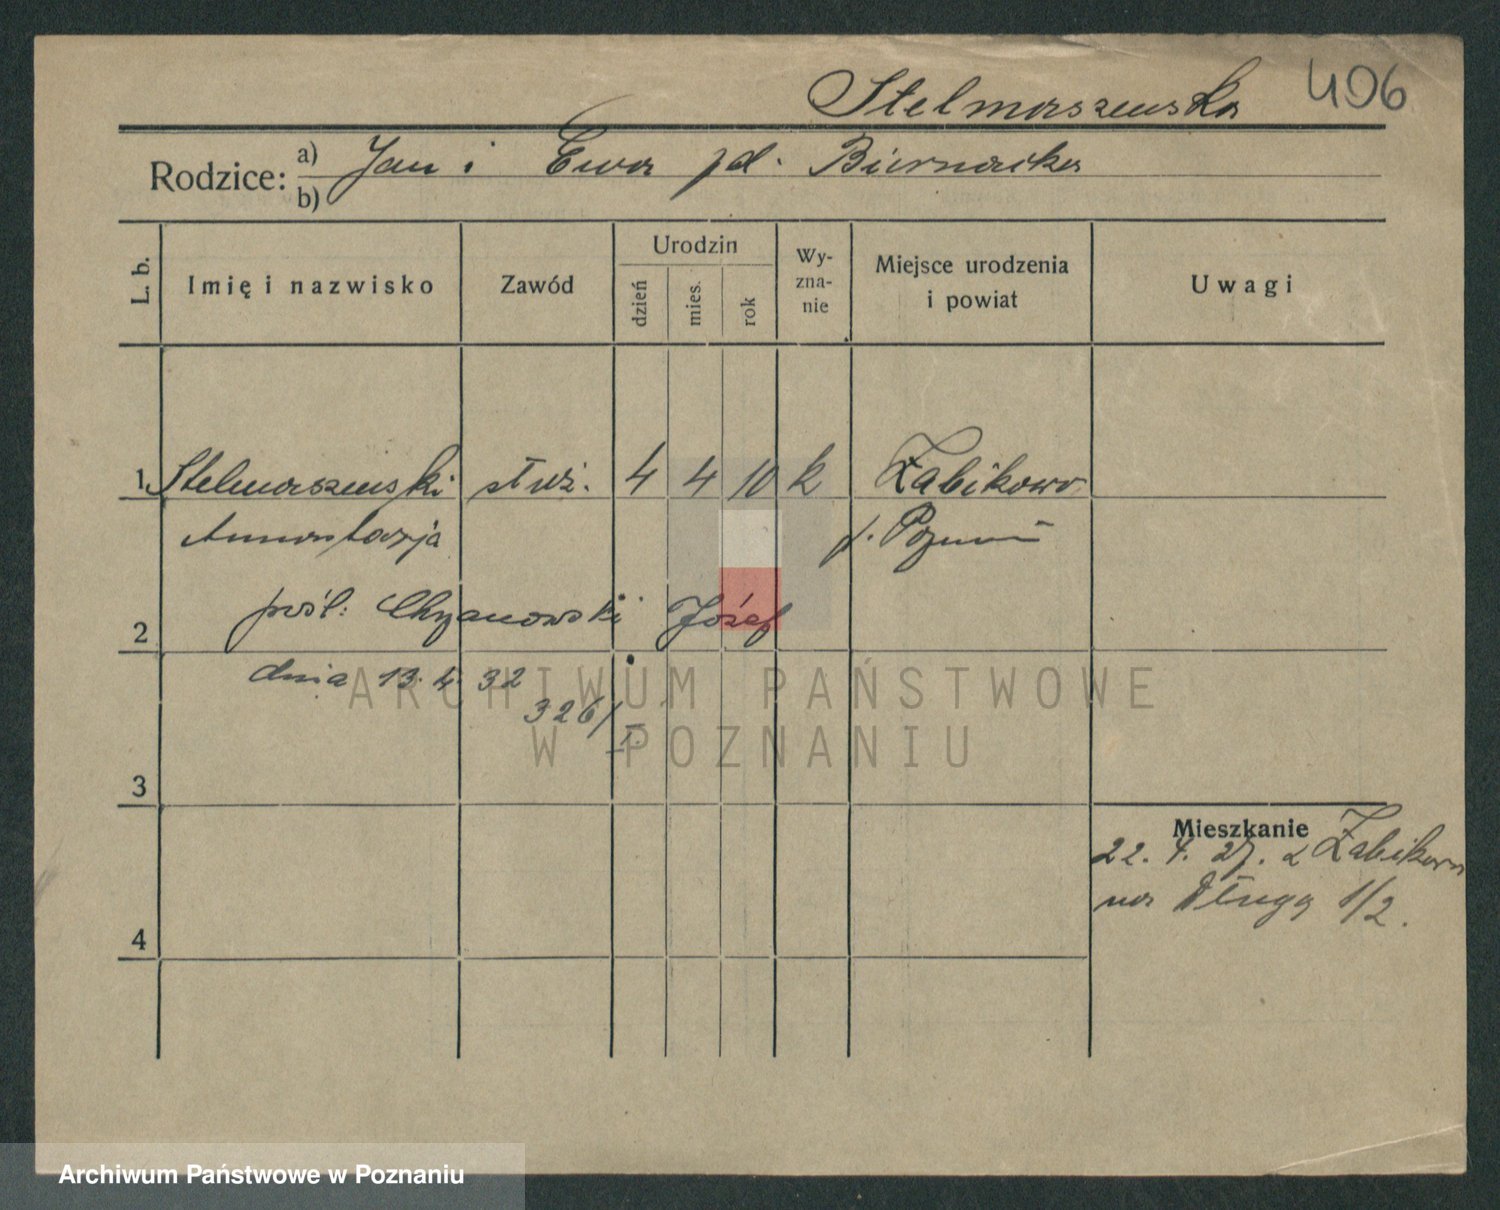 Stelmaszewska 406
Rodzice: a) Jan i Ewa pd. Biernacka
b)
L. b. Imię i nazwisko Zawód Urodzin dzień mies. rok Wyznanie Miejsce urodzenia i powiat Uwagi
1 Stelmaszewski służ. 4 4 10 k Żabikowo
Anastazja p. Poznań
pośl: Chrzanowski Józef
2
dnia 13. 4. 32
326/I.
3
Mieszkanie
22. 4. 27. z Żabikowa
na Długą 1/2.
4
ARCHIWUM PAŃSTWOWE
W POZNANIU
Archiwum Państwowe w Poznaniu